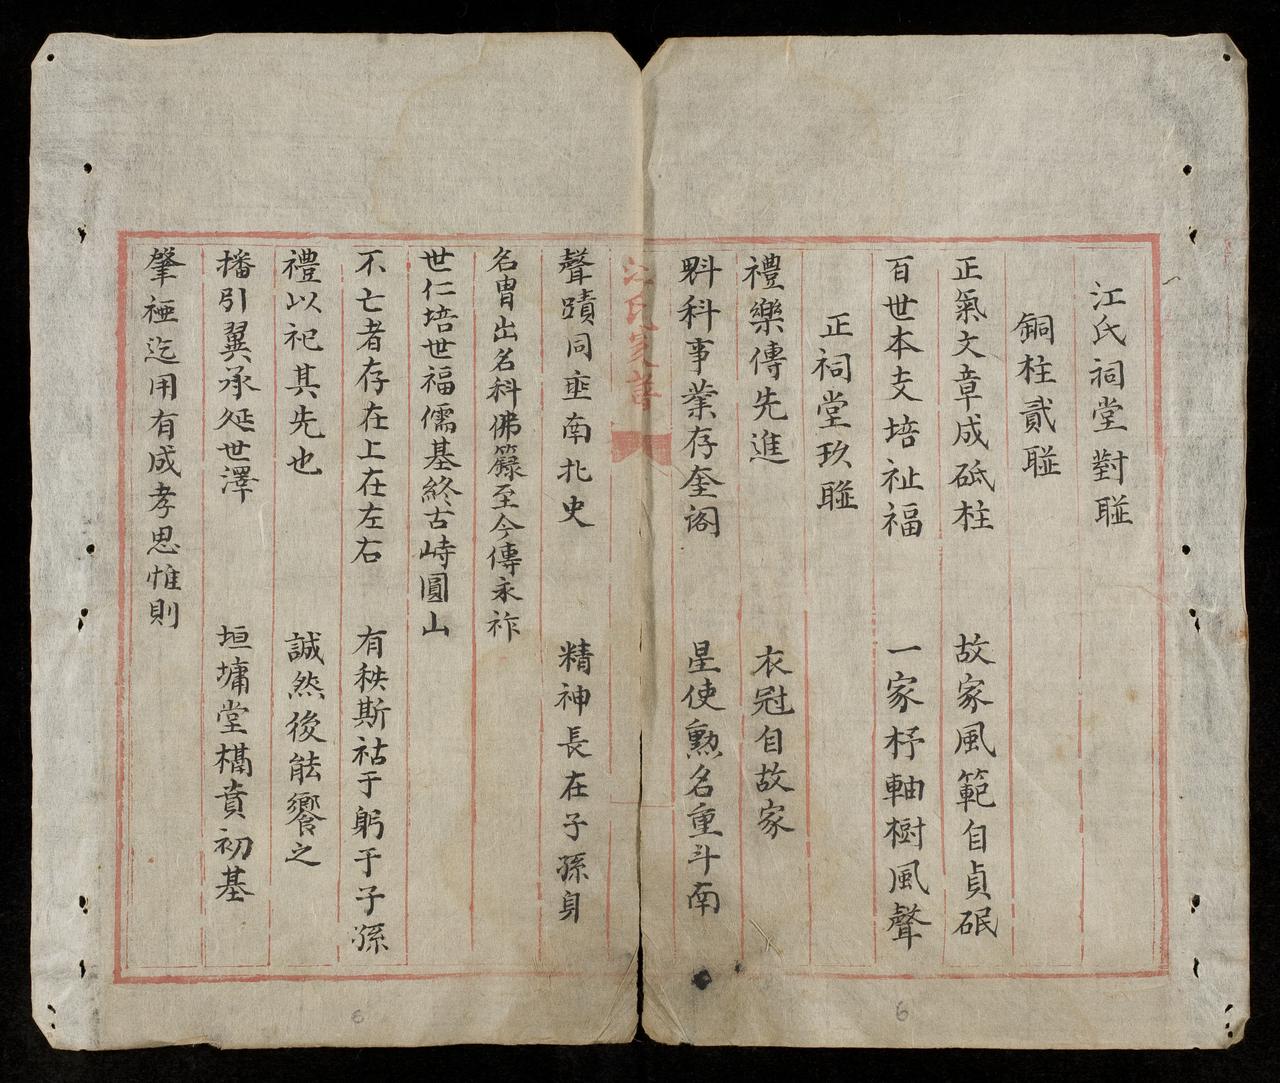 江氏祠堂對聯
銅柱貳聯
正氣文章成砥柱 故家風範自貞珉
百世本支培祉福 一家杼軸樹風聲
正祠堂玖聯
禮樂傳先進 衣冠自故家
科事業存奎閣 星使勲名重斗南
江氏家譜
聲蹟同垂南北史 精神長在子孫身
名胄出名科佛籙至今傳永祚
世仁培世福儒基終古峙圓山
不亡者存在上在左右 有秩斯祜于躬于子孫
禮以祀其先也 誠然後能饗之
播引翼承延世澤 垣墉堂構賁初基
肇禋迄用有成孝思惟則
6
6